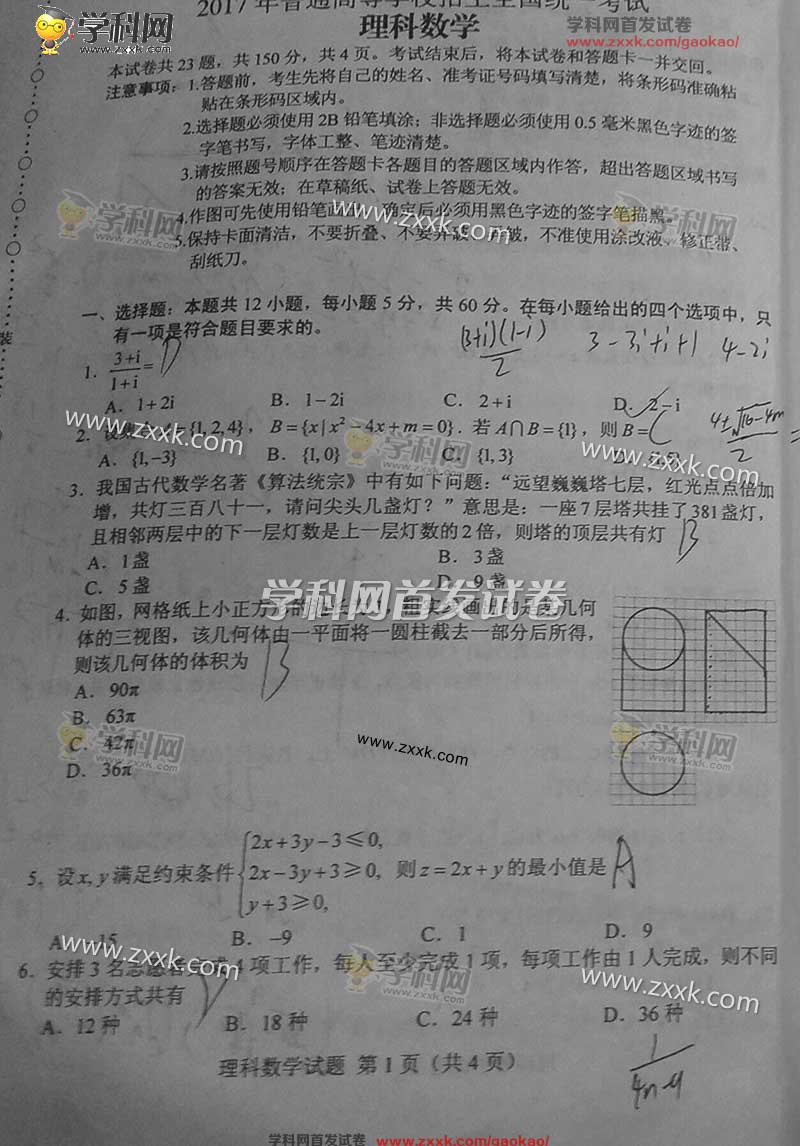 2017年普通高等学校招生全国统一考试
学科网首发试卷
www.zxxk.com/gaokao/
学科网
理科数学
本试卷共 23 题，共 150 分，共 4 页。考试结束后，将本试卷和答题卡一并交回。
注意事项：1.答题前，考生先将自己的姓名、准考证号码填写清楚，将条形码准确粘
贴在条形码区域内。
2.选择题必须使用 2B 铅笔填涂；非选择题必须使用 0.5 毫米黑色字迹的签
字笔书写，字体工整、笔迹清楚。
3.请按照题号顺序在答题卡各题目的答题区域内作答，超出答题区域书写
的答案无效；在草稿纸、试卷上答题无效。
4.作图可先使用铅笔画出，确定后必须用黑色字迹的签字笔描黑。
5.保持卡面清洁，不要折叠、不要弄破、弄皱，不准使用涂改液、修正带、
刮纸刀。
学科网
学科网
www.zxxk.com
一、选择题：本题共 12 小题，每小题 5 分，共 60 分。在每小题给出的四个选项中，只
有一项是符合题目要求的。
装
(3+i)(1-i)/2 3-3i+i+1 4-2i
1. (3+i)/(1+i)= D
A. 1+2i B. 1-2i C. 2+i D. 2-i
2. 设集 {1,2,4}，B={x|x²-4x+m=0}. 若 A∩B={1}，则 B= C
4±√16-4m/2 =
A. {1,-3} B. {1,0} C. {1,3} D.
www.zxxk.com
学科网
www.zxxk.com
3. 我国古代数学名著《算法统宗》中有如下问题：“远望巍巍塔七层，红光点点倍加
增，共灯三百八十一，请问尖头几盏灯？”意思是：一座 7 层塔共挂了 381 盏灯，
且相邻两层中的下一层灯数是上一层灯数的 2 倍，则塔的顶层共有灯 B
A. 1 盏 B. 3 盏
C. 5 盏 D. 9 盏
学科网首发试卷
4. 如图，网格纸上小正方形的 几何
体的三视图，该几何体由一平面将一圆柱截去一部分后所得，
则该几何体的体积为 B
A. 90π
B. 63π
C. 42π
D. 36π
学科网
www.zxxk.com
学科网
5. 设 x, y 满足约束条件 {2x+3y-3≤0,
2x-3y+3≥0, 则 z=2x+y 的最小值是 A
y+3≥0,
A. -15 B. -9 C. 1 D. 9
www.zxxk.com
学科网
www.zxxk.com
6. 安排 3 名志愿者完成 4 项工作，每人至少完成 1 项，每项工作由 1 人完成，则不同
的安排方式共有 D
A. 12 种 B. 18 种 C. 24 种 D. 36 种
理科数学试题 第 1 页（共 4 页）
学科网首发试卷 www.zxxk.com/gaokao/